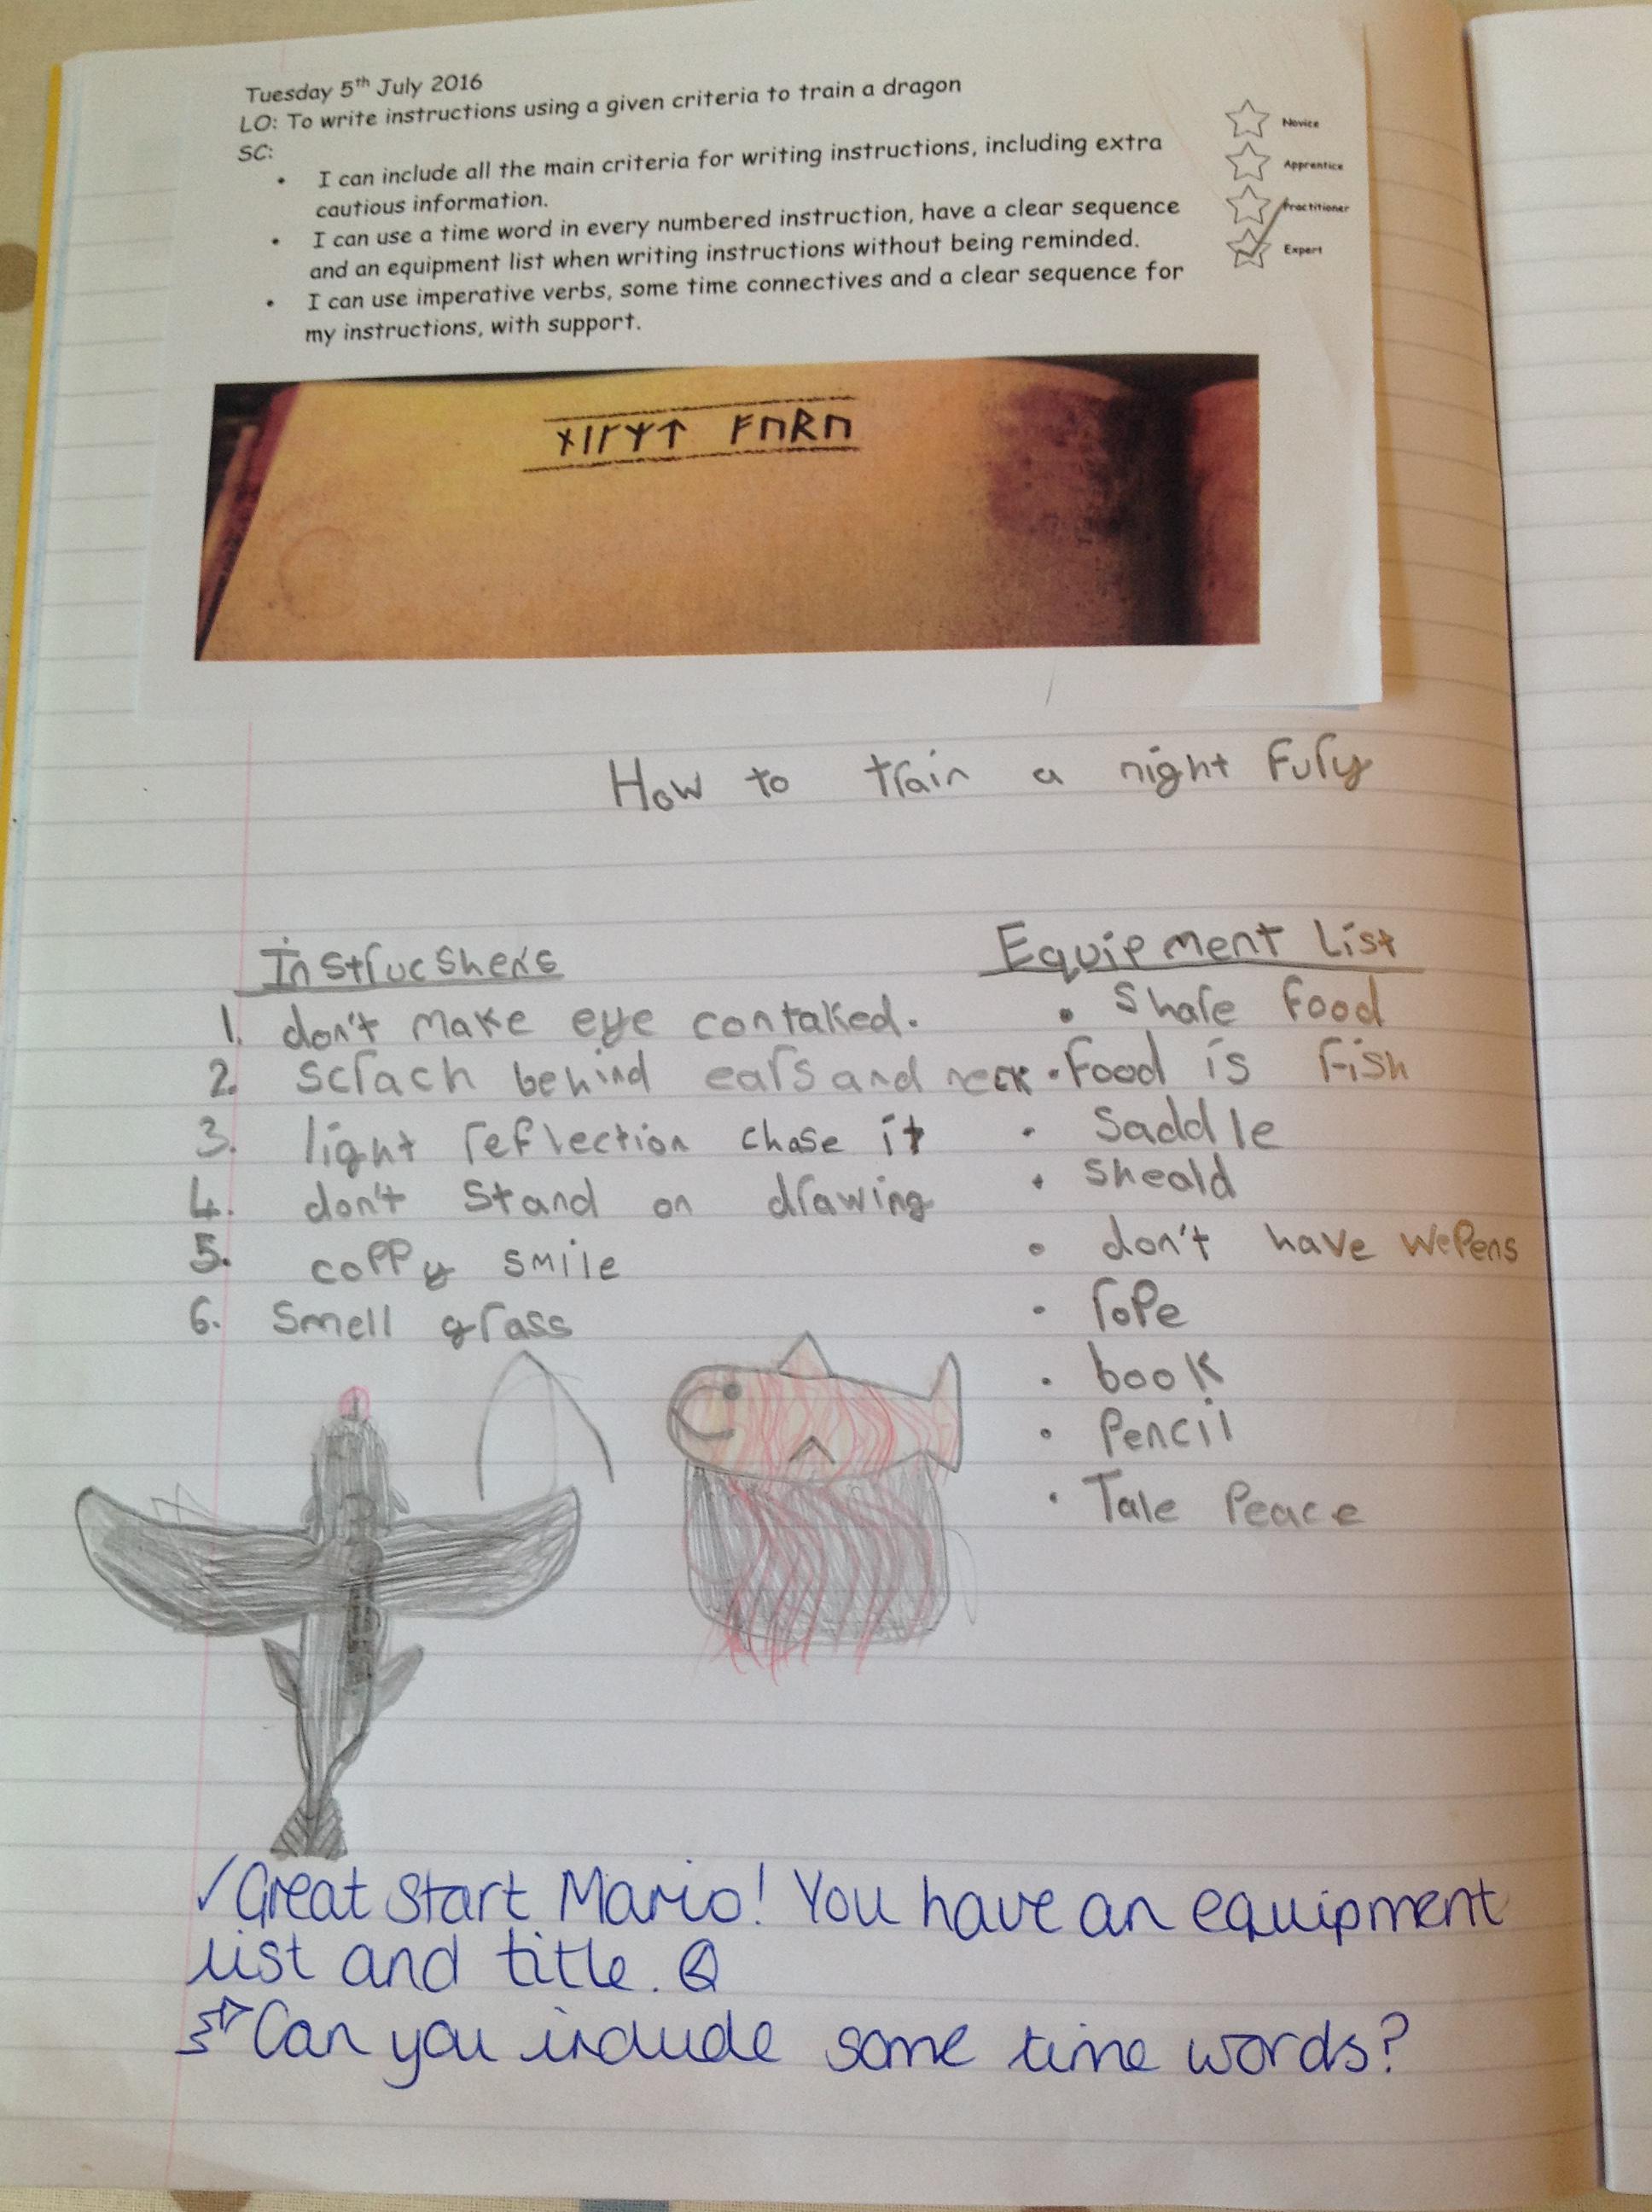 Tuesday 5th July 2016
LO: To write instructions using a given criteria to train a dragon
SC:
• I can include all the main criteria for writing instructions, including extra
cautious information.
• I can use a time word in every numbered instruction, have a clear sequence
and an equipment list when writing instructions without being reminded.
• I can use imperative verbs, some time connectives and a clear sequence for
my instructions, with support.
Novice
Apprentice
Practitioner
Expert
ᚾᛁᚴᛉᛏ ᚠᚢᚱᚢ
How to train a night fury
Instrucshens
1. don't make eye contaked.
2. scrach behind ears and neck
3. light reflection chase it
4. don't stand on drawing
5. coppy smile
6. smell grass
Equipment List
• Share food
• Food is fish
• Saddle
• Sheald
• don't have wepens
• rope
• book
• Pencil
• Tale Peace
✓ Great start Mario! You have an equipment
list and title.
Can you include some time words?